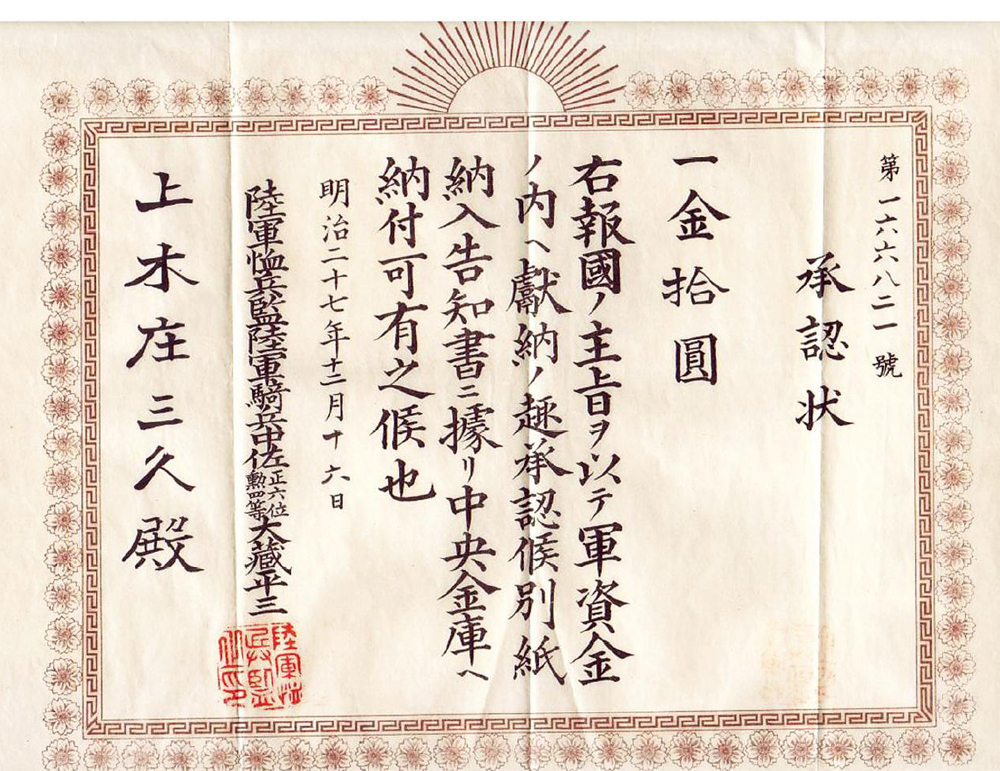 第一六六八二一號
承認状
一金拾圓
右報國ノ主旨ヲ以テ軍資金
ノ内ヘ獻納ノ趣承認候別紙
納入告知書ニ據リ中央金庫ヘ
納付可有之候也
明治二十七年十二月十六日
陸軍恤兵監陸軍騎兵中佐正六位勲四等大藏平三
陸軍恤兵監之印
上木庄三久殿